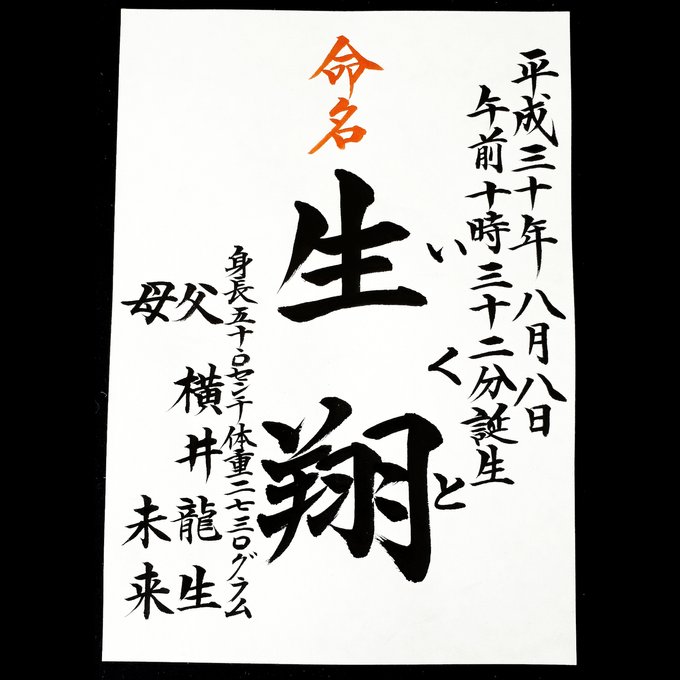 平成三十年八月八日
午前十時三十二分誕生
いくと
命名
生翔
身長五十.〇センチ体重二七三〇グラム
父 横井龍生
母 未来